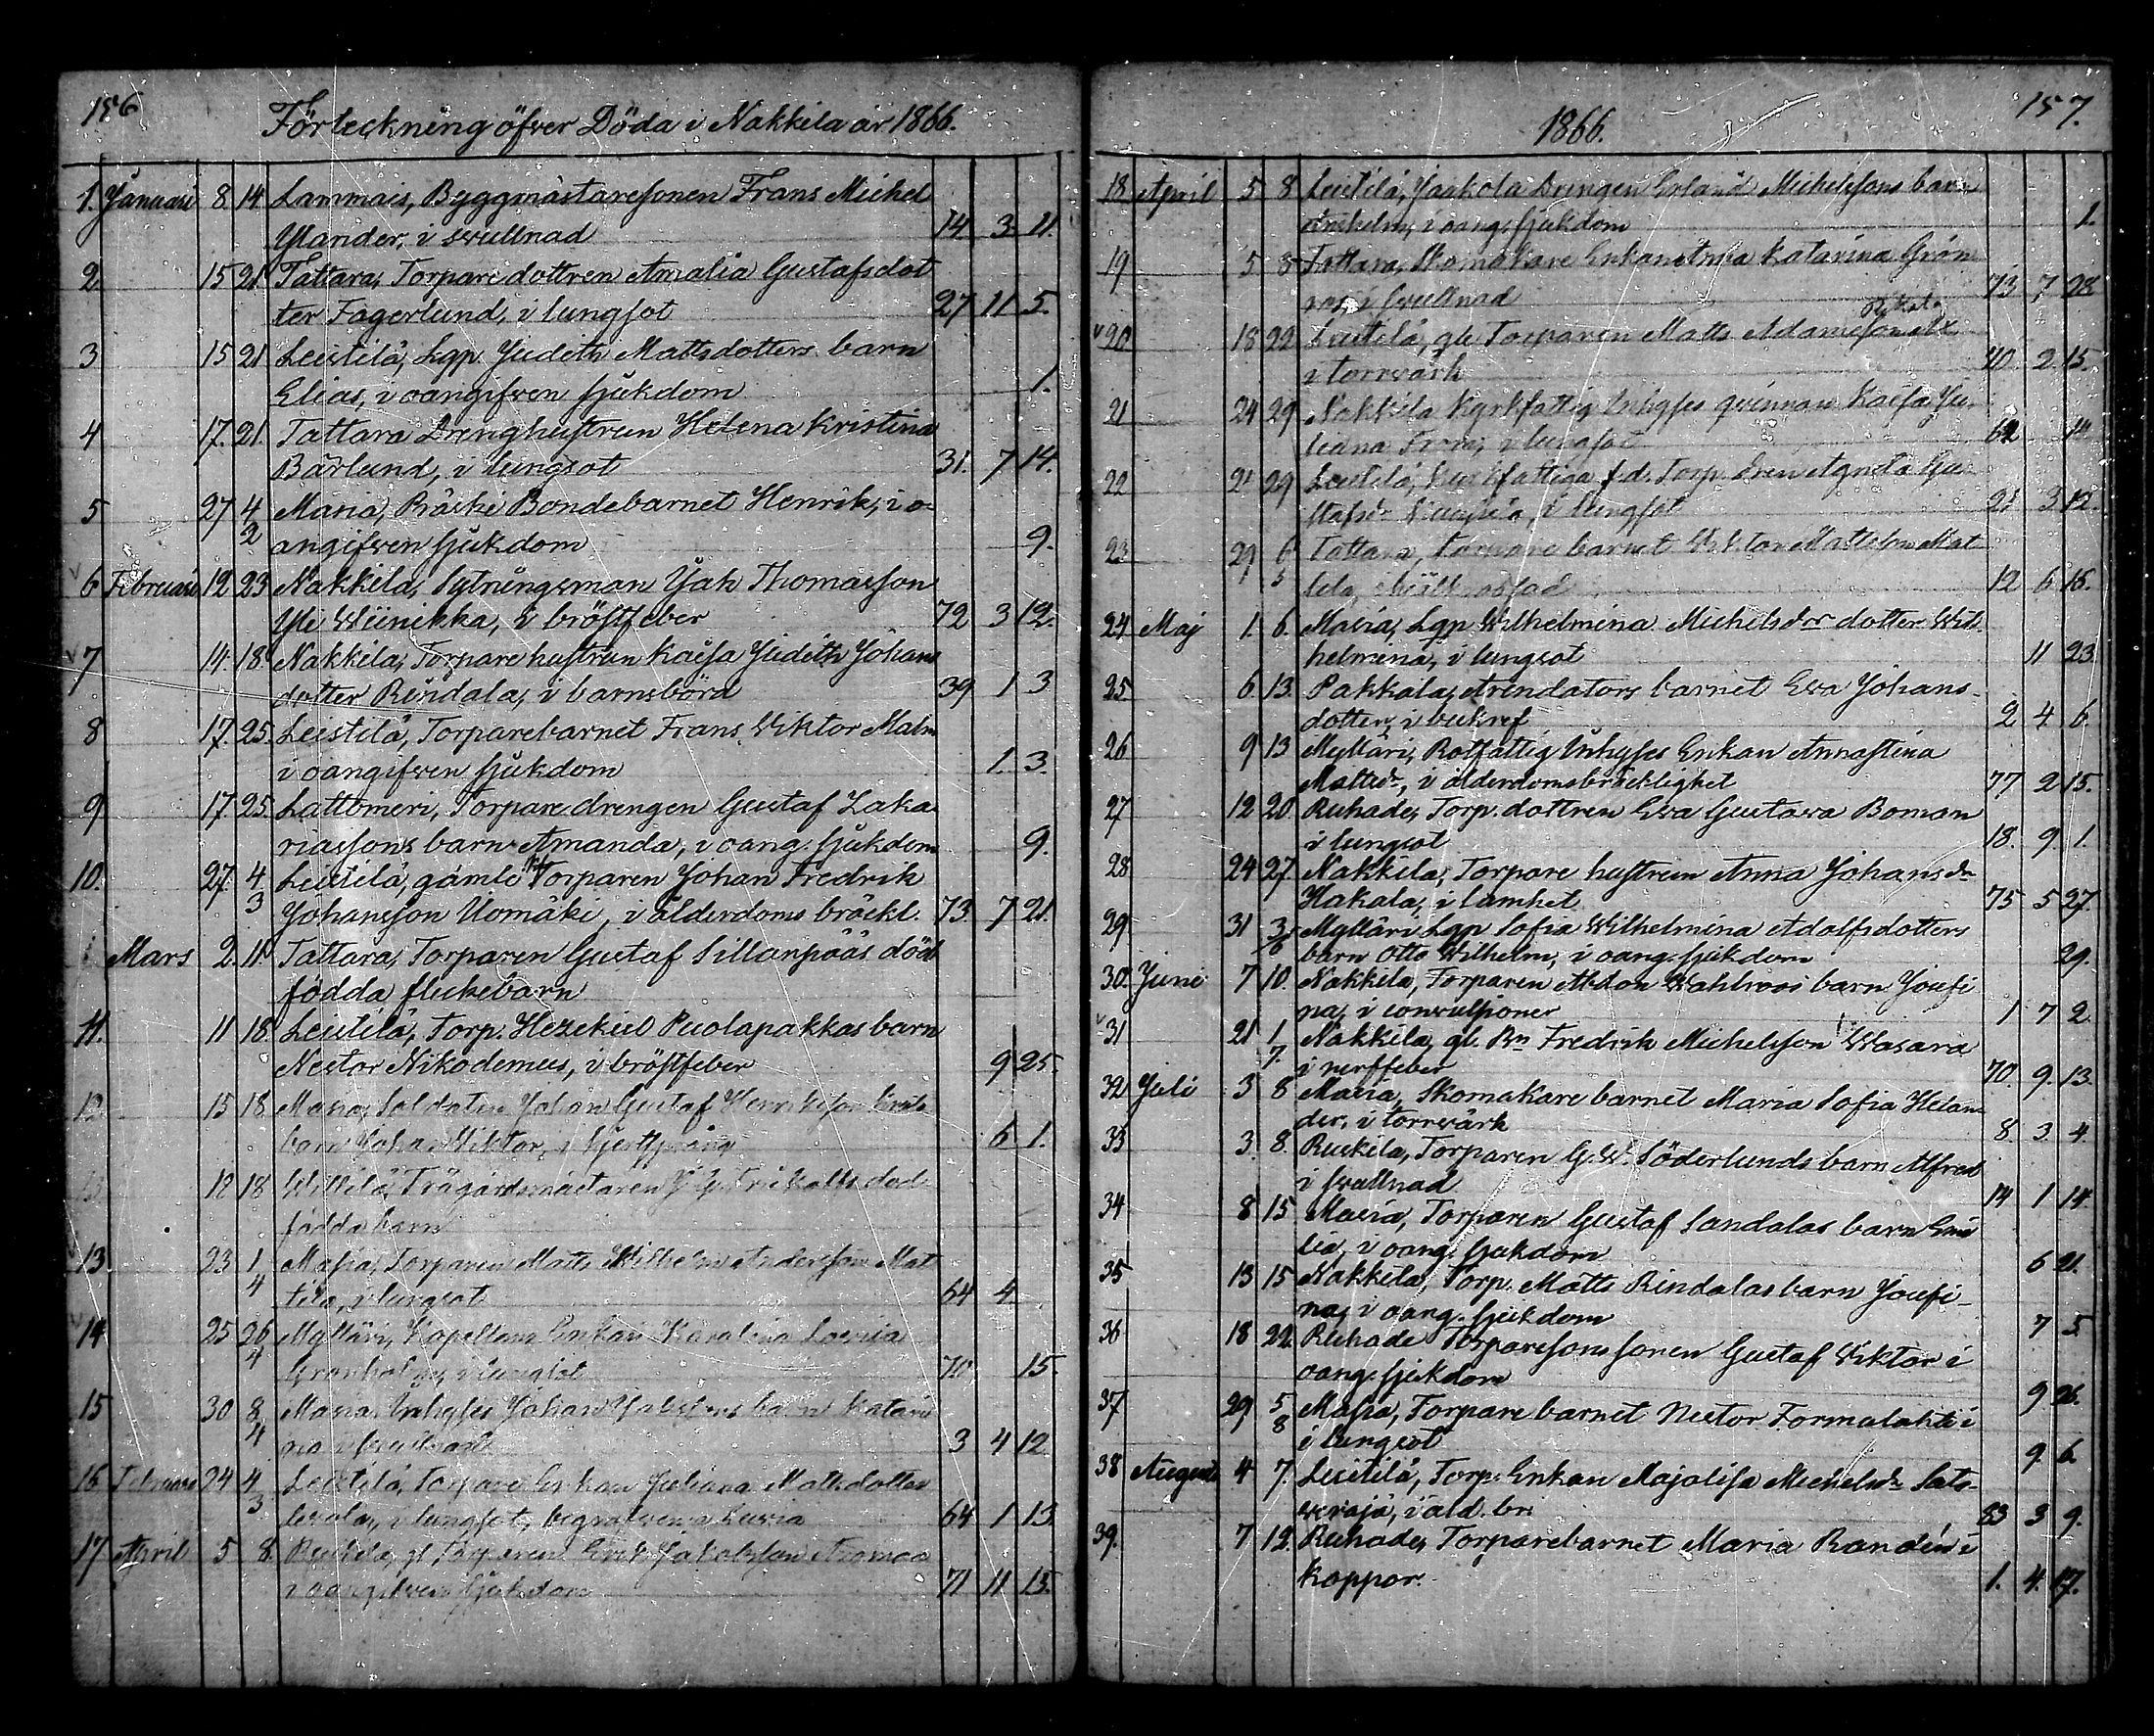 156
Förteckning öfver Döda i Nakkila år 1866.
1. Januari 8. 14. Lammais, Byggmästaresonen Frans Michel
Ylander, i svullnad 14 3. 11.
2. 15 21. Tattara, Torparedottren Amalia Gustafsdot
ter Fagerlund, i lungsot 27 11 5.
3 15 21 Leistilä, Lgp. Judeth Mattsdotters barn
Elias, i oangifven sjukdom 1.
4 17. 21. Tattara Drenghustrun Helena Kristina
Bärlund, i lungsot 31. 7 14.
5 27 4/2 Masia, Räiski Bondebarnet Henrik, i o-
angifven sjukdom 9.
6 Februari 12 23 Nakkila, Sytningsman Jak Thomasson
Yli Wiinikka, i bröstfeber 72 3 12.
7 14. 18. Nakkila, Torparehustrun Kaisa Judith Johans
dotter Rindala, i barnsbörd 39 1 3
8 17. 25. Leistilä, Torparebarnet Frans Viktor Malm
i oangifven sjukdom 1. 3.
9 17. 25. Lattomeri, Torparedrengen Gustaf Zaka
riassons barn Amanda, i oang. sjukdom 9.
10. 27. 4/3 Leistilä, gamle Torparen Johan Fredrik
Johansson Uomäki, i ålderdoms bräckl. 73. 7 21.
Mars 2. 11. Tattara, Torparen Gustaf Sillanpääs död
födda flickebarn
11. 11 18. Leistilä, Torp. Hezekiel Puolapakkas barn
Nestor Nikodemus, i bröstfeber 9 25.
12. 15 18. Soldaten Johan Gustaf
barn Johan Viktor, i 6 1.
18 18 Trägårdsmästaren död
födda barn
13 23 1/4 Masia, Torparen Matts Wilhelm Andersson Mat
tila, i lungsot 64 4.
14 25 26/4 Mylläri, Kapellans Enkan Karolina Lovisa
i lungsot 70 15.
15 30 8/4 Masia Inhyses Johan barn Katari
na i svullnad 3 4 12.
16 Februari 24 4/3 Leistilä, Torpare Enkan Juliana Mattsdotter
i lungsot, 64 1 13
17 April 5 8. gl. Torparen Erik Jakobsson
i oangifven sjukdom 71 11 15.
157.
1866.
18 April 5 8 Leistilä, Jaakola Drengen Erland Michelssons barn
i oang. sjukdom 1.
19 5 8 Tattara, Skomakare Enkan Katarina Grön
roos, i svullnad 73 7 28
20 18 22 Leistilä, gle Torparen Matts Adamsson
i torrvärk 40 2 15.
21 24 29 Nakkila Kyrkfattig Inhyses qvinnan Kaisa Ju
liana i lungsot 62 14.
22 29 Leistilä, fattiga f.d. Torp. dren Agneta Gu
stafsdr i lungsot 3 12.
23 29 6/5 Tattara, Torpare barnet Viktor Mattsson Mat
tila, 12 6 15.
24 Maj 1. 6. Masia, Lgp Wilhelmina Michelsdrs dotter Wil
helmina, i lungsot 11 23.
25 6. 13. Pakkala, Arendators barnet Eva Johans-
dotter, i bukref 2 4 6.
26 9 13 Mylläri, Rotfattig Inhyses Enkan Annastina
Mattsdr, i ålderdomsbräcklighet 77 2 15.
27 12 20. Ruhade, Torp. dottren Eva Gustava Boman
i lungsot 18. 9 1.
28 24 27. Nakkila, Torpare hustrun Anna Johansdr
Hakala, i lamhet 75 5 27.
29 31 3/6 Mylläri Lgp Sofia Wilhelmina Adolfsdotters
barn Otto Wilhelm, i oang. sjukdom 29.
30. Juni 7 10. Nakkila, Torparen Abdon Wahlroos barn Josefi
na, i convulsioner 1 7 2.
31 21 1/7. Nakkila, gl. Bn Fredrik Michelsson Wasara
i nerffeber 70. 9. 13.
32 Juli 3 8 Masia, Skomakare barnet Maria Sofia Helan
der, i torrvärk 8. 3 4.
33 3. 8. Ruskila, Torparen G.W. Söderlunds barn Alfred
i svullnad 14 1 14.
34 8 15 Masia, Torparen Gustaf Sandalas barn Emi
lia, i oang. sjukdom 6 21.
35 13 15 Nakkila, Torp. Matts Rindalas barn Josefi-
na, i oang. sjukdom 7 5.
36 18 22 Ruhade Torparesons sonen Gustaf Viktor i
oang. sjukdom 9 26.
37 29 5/8 Masia, Torpare barnet Nestor Tormalahti i
i lungsot 9. 6.
38 Augusti 4 7. Leistilä, Torp. Enkan Majalisa Michelsdr Sata-
vuoja, i åld. br. 83 3 9.
39. 7 12. Ruhade, Torparebarnet Maria Randén i
koppor. 1. 4. 17.